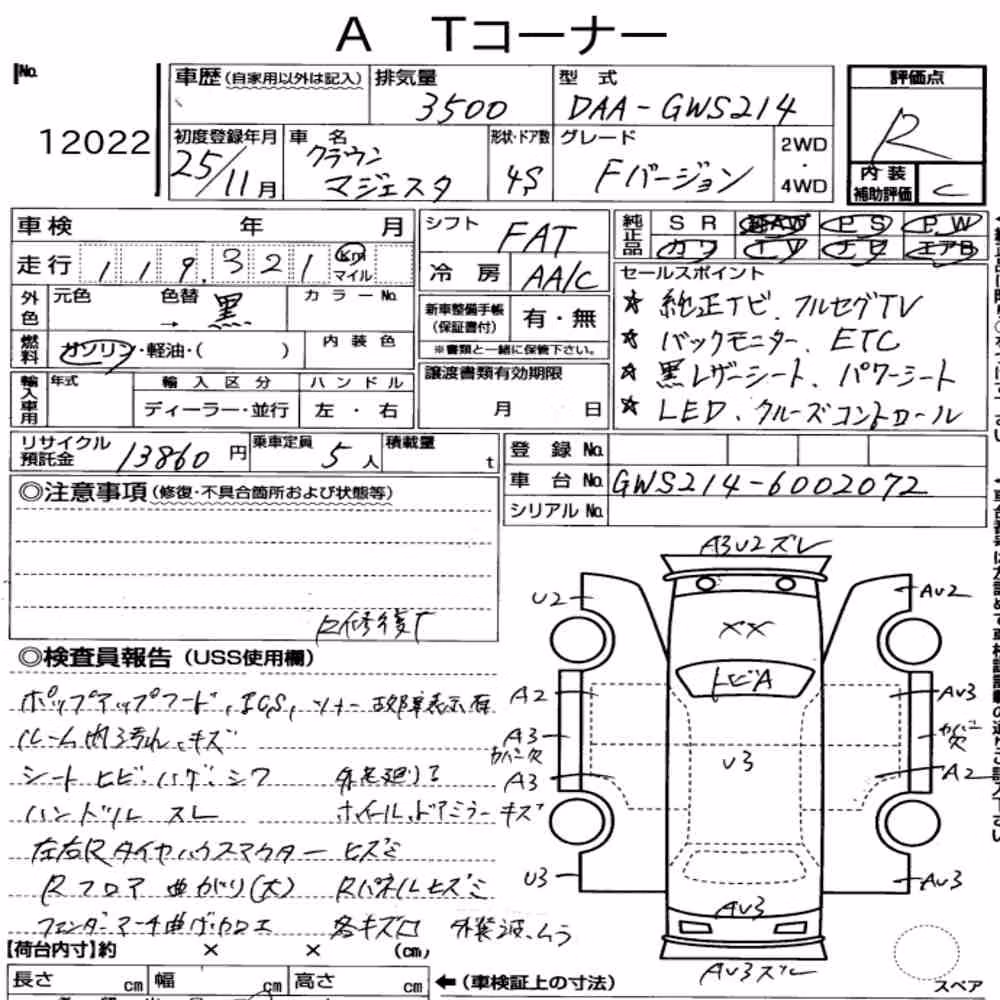 A Tコーナー
No.
12022
車歴(自家用以外は記入)
排気量
3500
型式
DAA-GWS214
評価点
R
初度登録年月
25/11月
車名
クラウン
マジェスタ
形状・ドア数
4S
グレード
Fバージョン
2WD
・
4WD
内装
補助評価
C
車検 年 月
走行 119,321 km
マイル
シフト
FAT
冷房
AA/C
純正品
SR 純AW PS PW
カワ TV ナビ エアB
外色
元色 色替
→ 黒
カラーNo.
燃料
ガソリン・軽油・( )
内装色
新車整備手帳
(保証書付)
有・無
※書類と一緒に保管下さい。
セールスポイント
☆ 純正ナビ、フルセグTV
☆ バックモニター、ETC
☆ 黒レザーシート、パワーシート
☆ LED、クルーズコントロール
輸入車用
年式
輸入区分
ディーラー・並行
ハンドル
左・右
譲渡書類有効期限
月 日
リサイクル
預託金
13860円
乗車定員
5人
積載量
t
登録No.
車台No. GWS214-6002072
シリアルNo.
◎注意事項(修復・不具合箇所および状態等)
◎検査員報告(USS使用欄)
ポップアップフード、ICS、ソナー故障表示有
ルーム内汚れ、キズ
シート ヒビ・ハゲ・シワ
ハンドル スレ
ホイール、ドアミラーキズ
左右Rタイヤハウスマクター ヒズミ
Rフロア 曲がり(大) Rパネルヒズミ
各キズ凹 外装波、ムラ
A3U2ズレ
U2
AU2
XX
トビA
A2
AU3
A3
カバー欠
カバー欠
A3
U3
A2
U3
AU3
AU3
AU3ズレ
スペア
【荷台内寸】約 × × (cm)
長さ cm 幅 cm 高さ cm
←(車検証上の寸法)